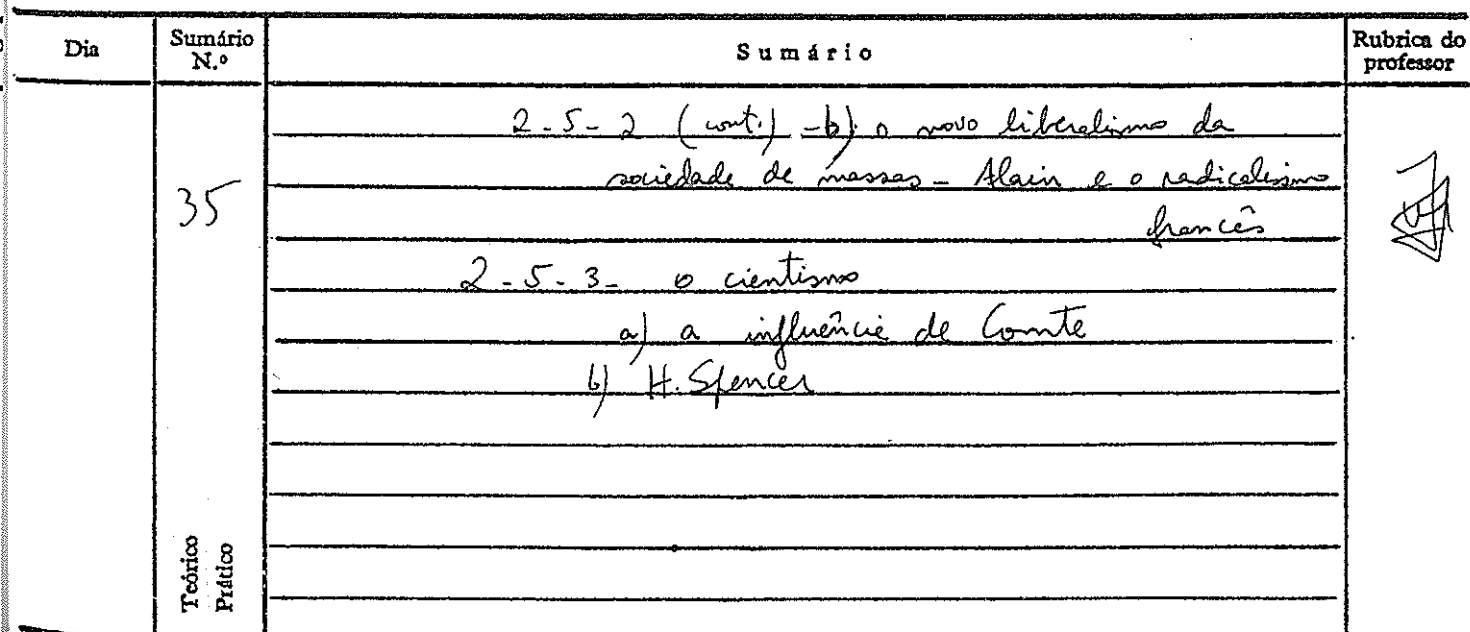 Dia
Sumário N.º
Sumário
Rubrica do professor
35
2-5-2 (cont.) -b) o novo liberalismo da
sociedade de massas - Alain e o radicalismo
francês
2-5-3- o cientismo
a) a influência de Comte
b) H. Spencer
Teórico
Prático